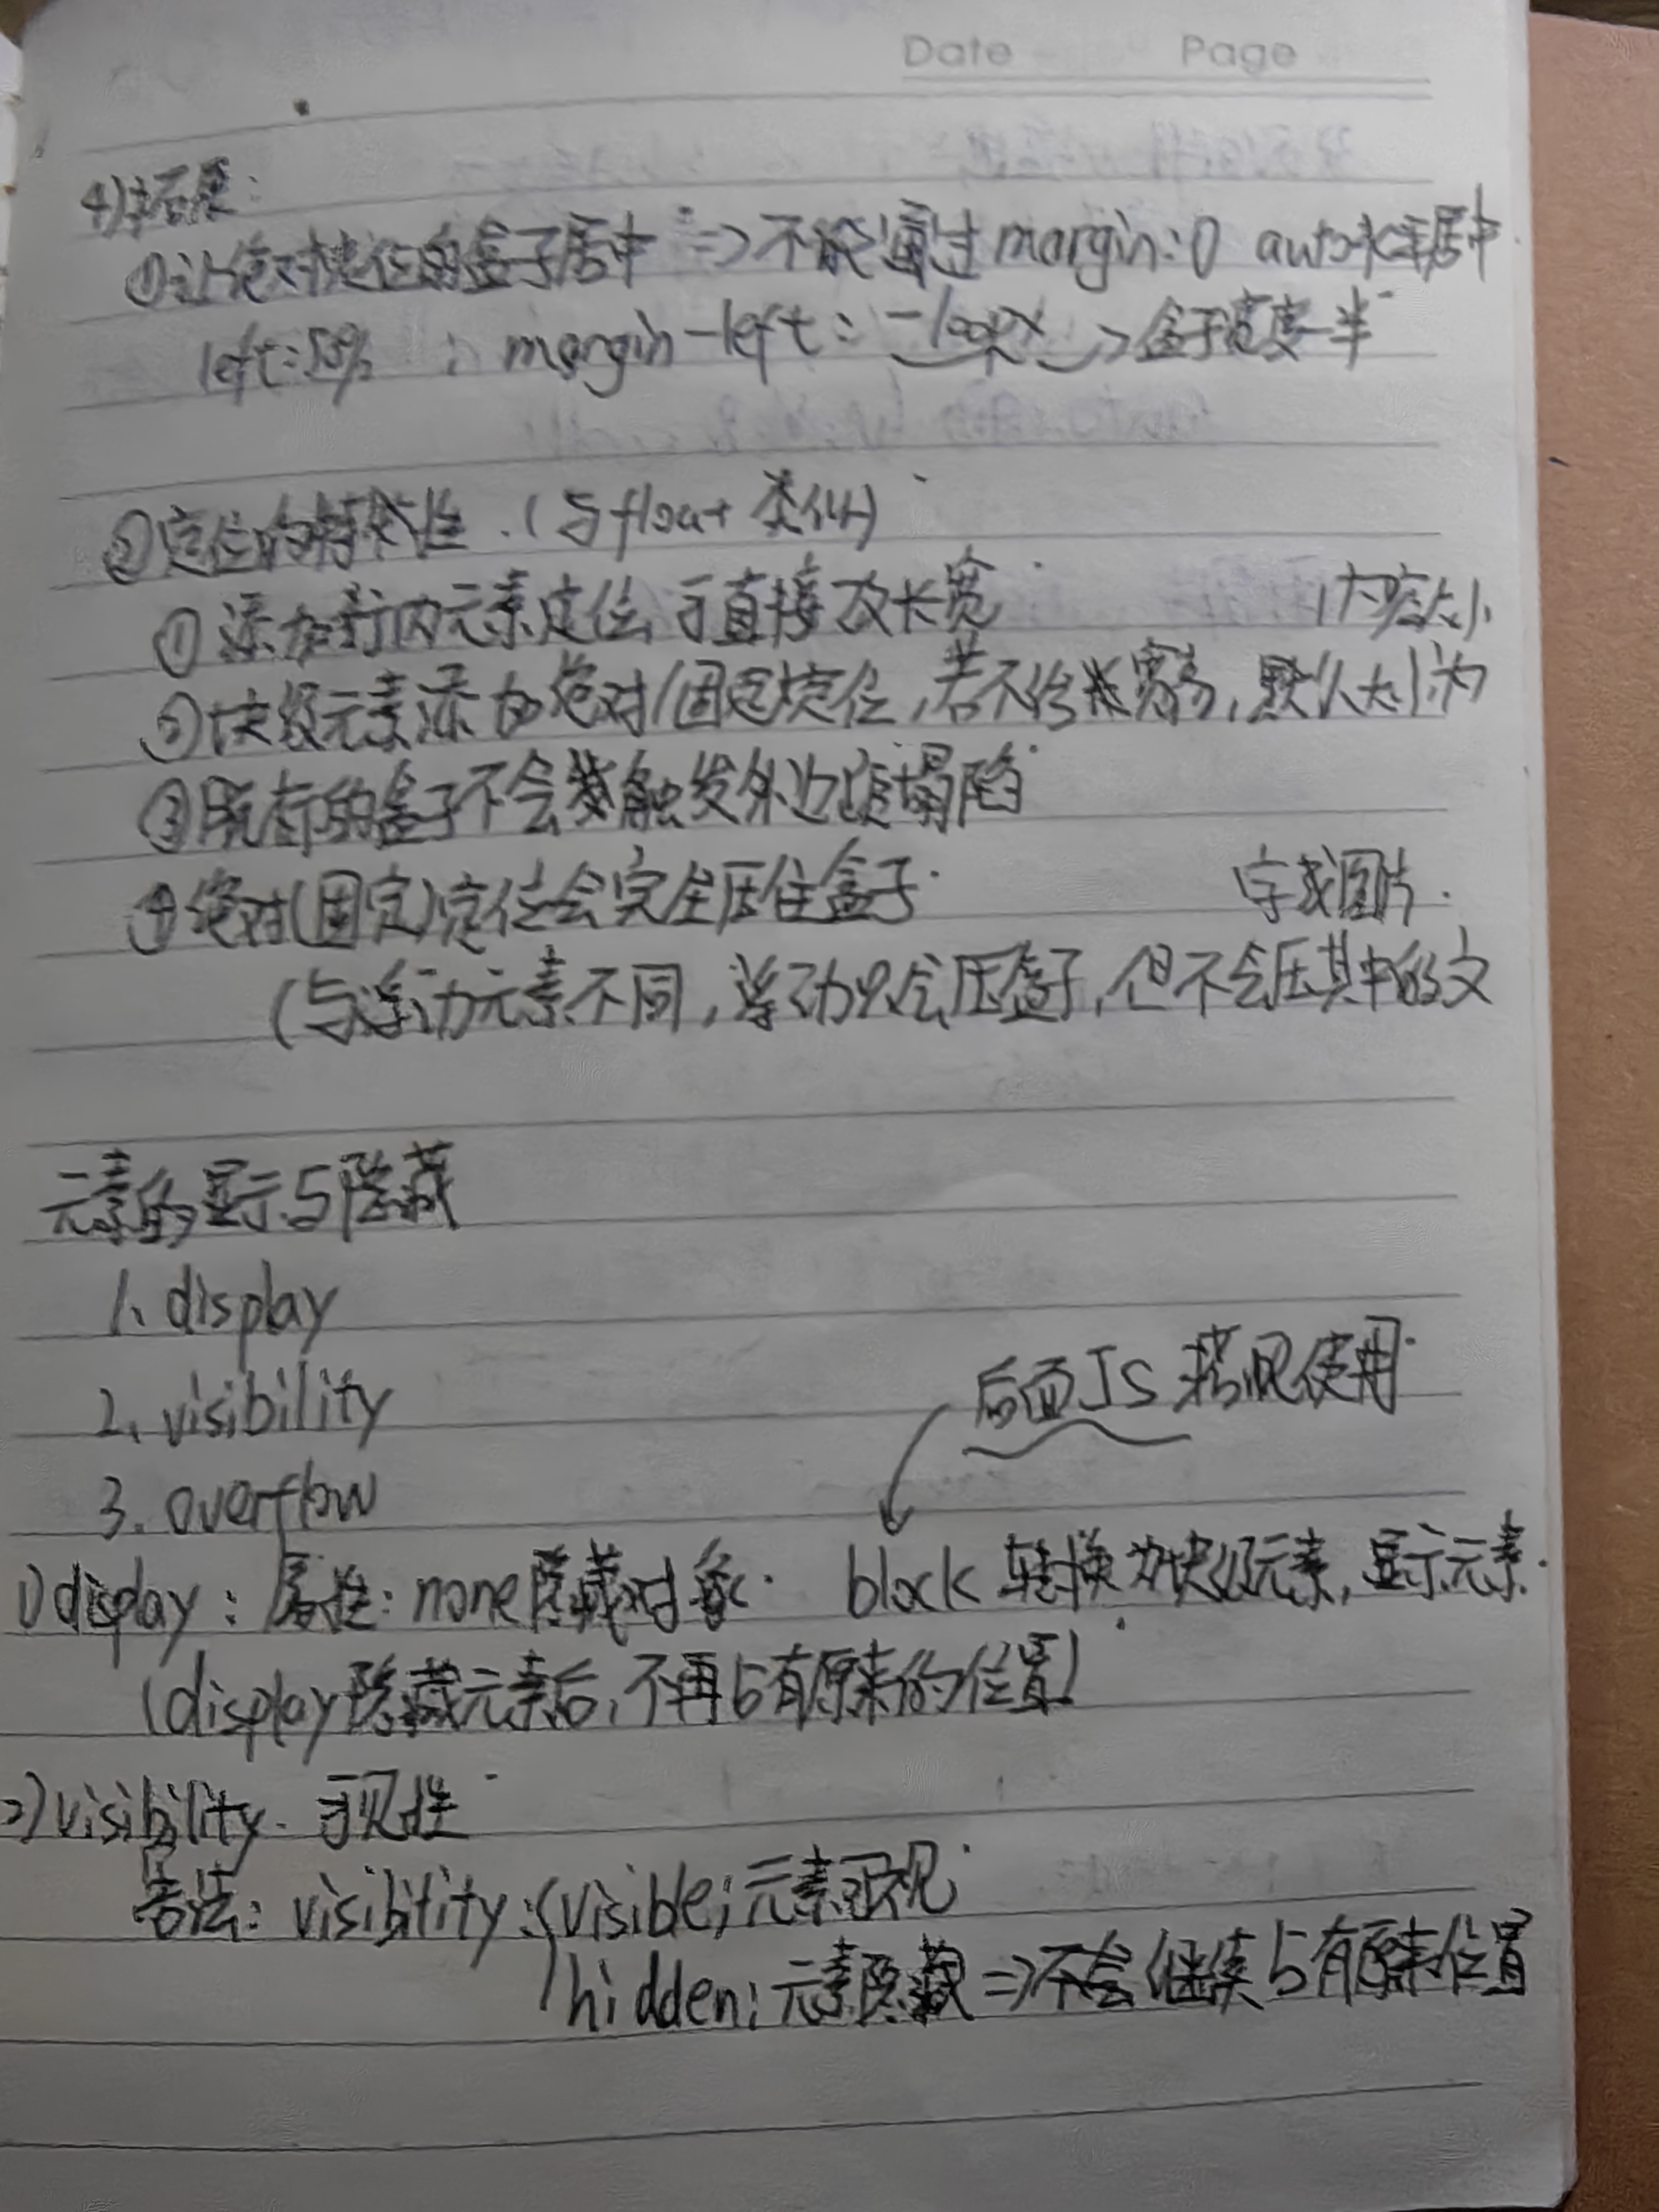 Date Page
4)拓展:
①让绝对定位的盒子居中 => 不能通过margin:0 auto水平居中
left:50% ; margin-left: -100px -> 盒子宽度一半
②定位的特殊性.(与float类似)
①添加行内元素定位可直接改长宽
内容大小
②块级元素添加绝对/固定定位,若不给宽高,默认大小为
③脱标的盒子不会触发外边距塌陷
④绝对(固定)定位会完全压住盒子
字或图片.
(与浮动元素不同,浮动只会压盒子,但不会压其中的文
元素的显示与隐藏
1. display
2. visibility
后面JS搭配使用
3. overflow
1)display: 属性: none隐藏对象. block 转换为块级元素,显示元素.
(display隐藏元素后,不再占有原来的位置)
2)visibility. 可见性
语法: visibility: visible; 元素可视
hidden; 元素隐藏 => 不会继续占有原来位置